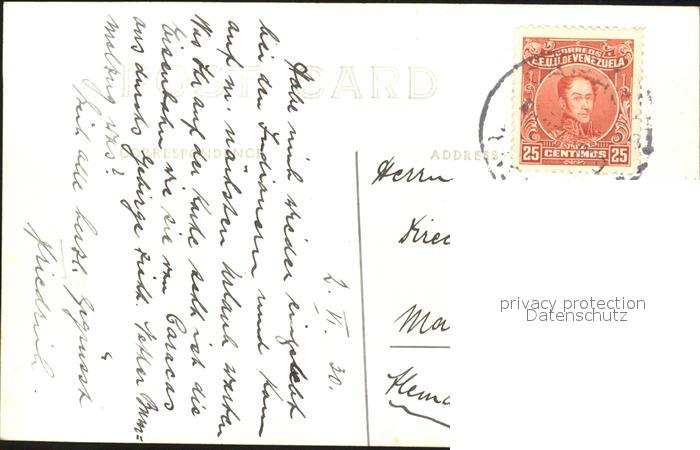 POST CARD
CORRESPONDENCE
ADDRESS
CORREOS
E.E.U.U. DE VENEZUELA
25 CENTIMOS 25
2. VI. 30.
Habe mich wieder eingelebt
bei den Indianern und kann
auf m. nächsten Urlaub warten
Was Ihr auf der Karte seht ist die
Eisenbahn wie sie von Caracas
aus durchs Gebirge zieht.
was?
Seid alle herzl. gegrüsst
Friedrich.
Herrn
Direc
Ma
privacy protection
Datenschutz